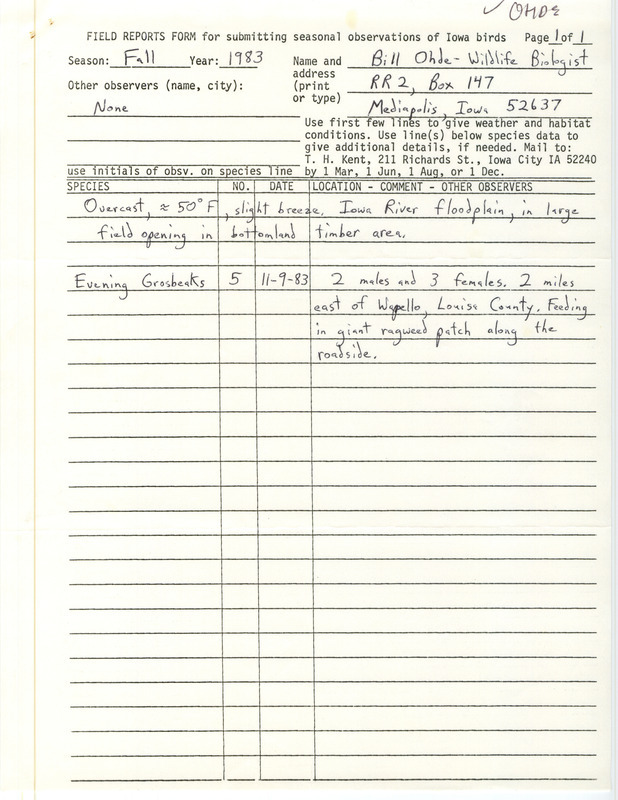 ✓ OHDE
FIELD REPORTS FORM for submitting seasonal observations of Iowa birds Page 1 of 1
Season: Fall Year: 1983 Name and address (print or type) Bill Ohde - Wildlife Biologist
RR 2, Box 147
Mediapolis, Iowa 52637
Other observers (name, city):
None
Use first few lines to give weather and habitat
conditions. Use line(s) below species data to
give additional details, if needed. Mail to:
T. H. Kent, 211 Richards St., Iowa City IA 52240
use initials of obsv. on species line by 1 Mar, 1 Jun, 1 Aug, or 1 Dec.
SPECIES NO. DATE LOCATION - COMMENT - OTHER OBSERVERS
Overcast, ≈ 50°F, slight breeze. Iowa River floodplain, in large
field opening in bottomland timber area.
Evening Grosbeaks 5 11-9-83 2 males and 3 females. 2 miles
east of Wapello, Louisa County. Feeding
in giant ragweed patch along the
roadside.